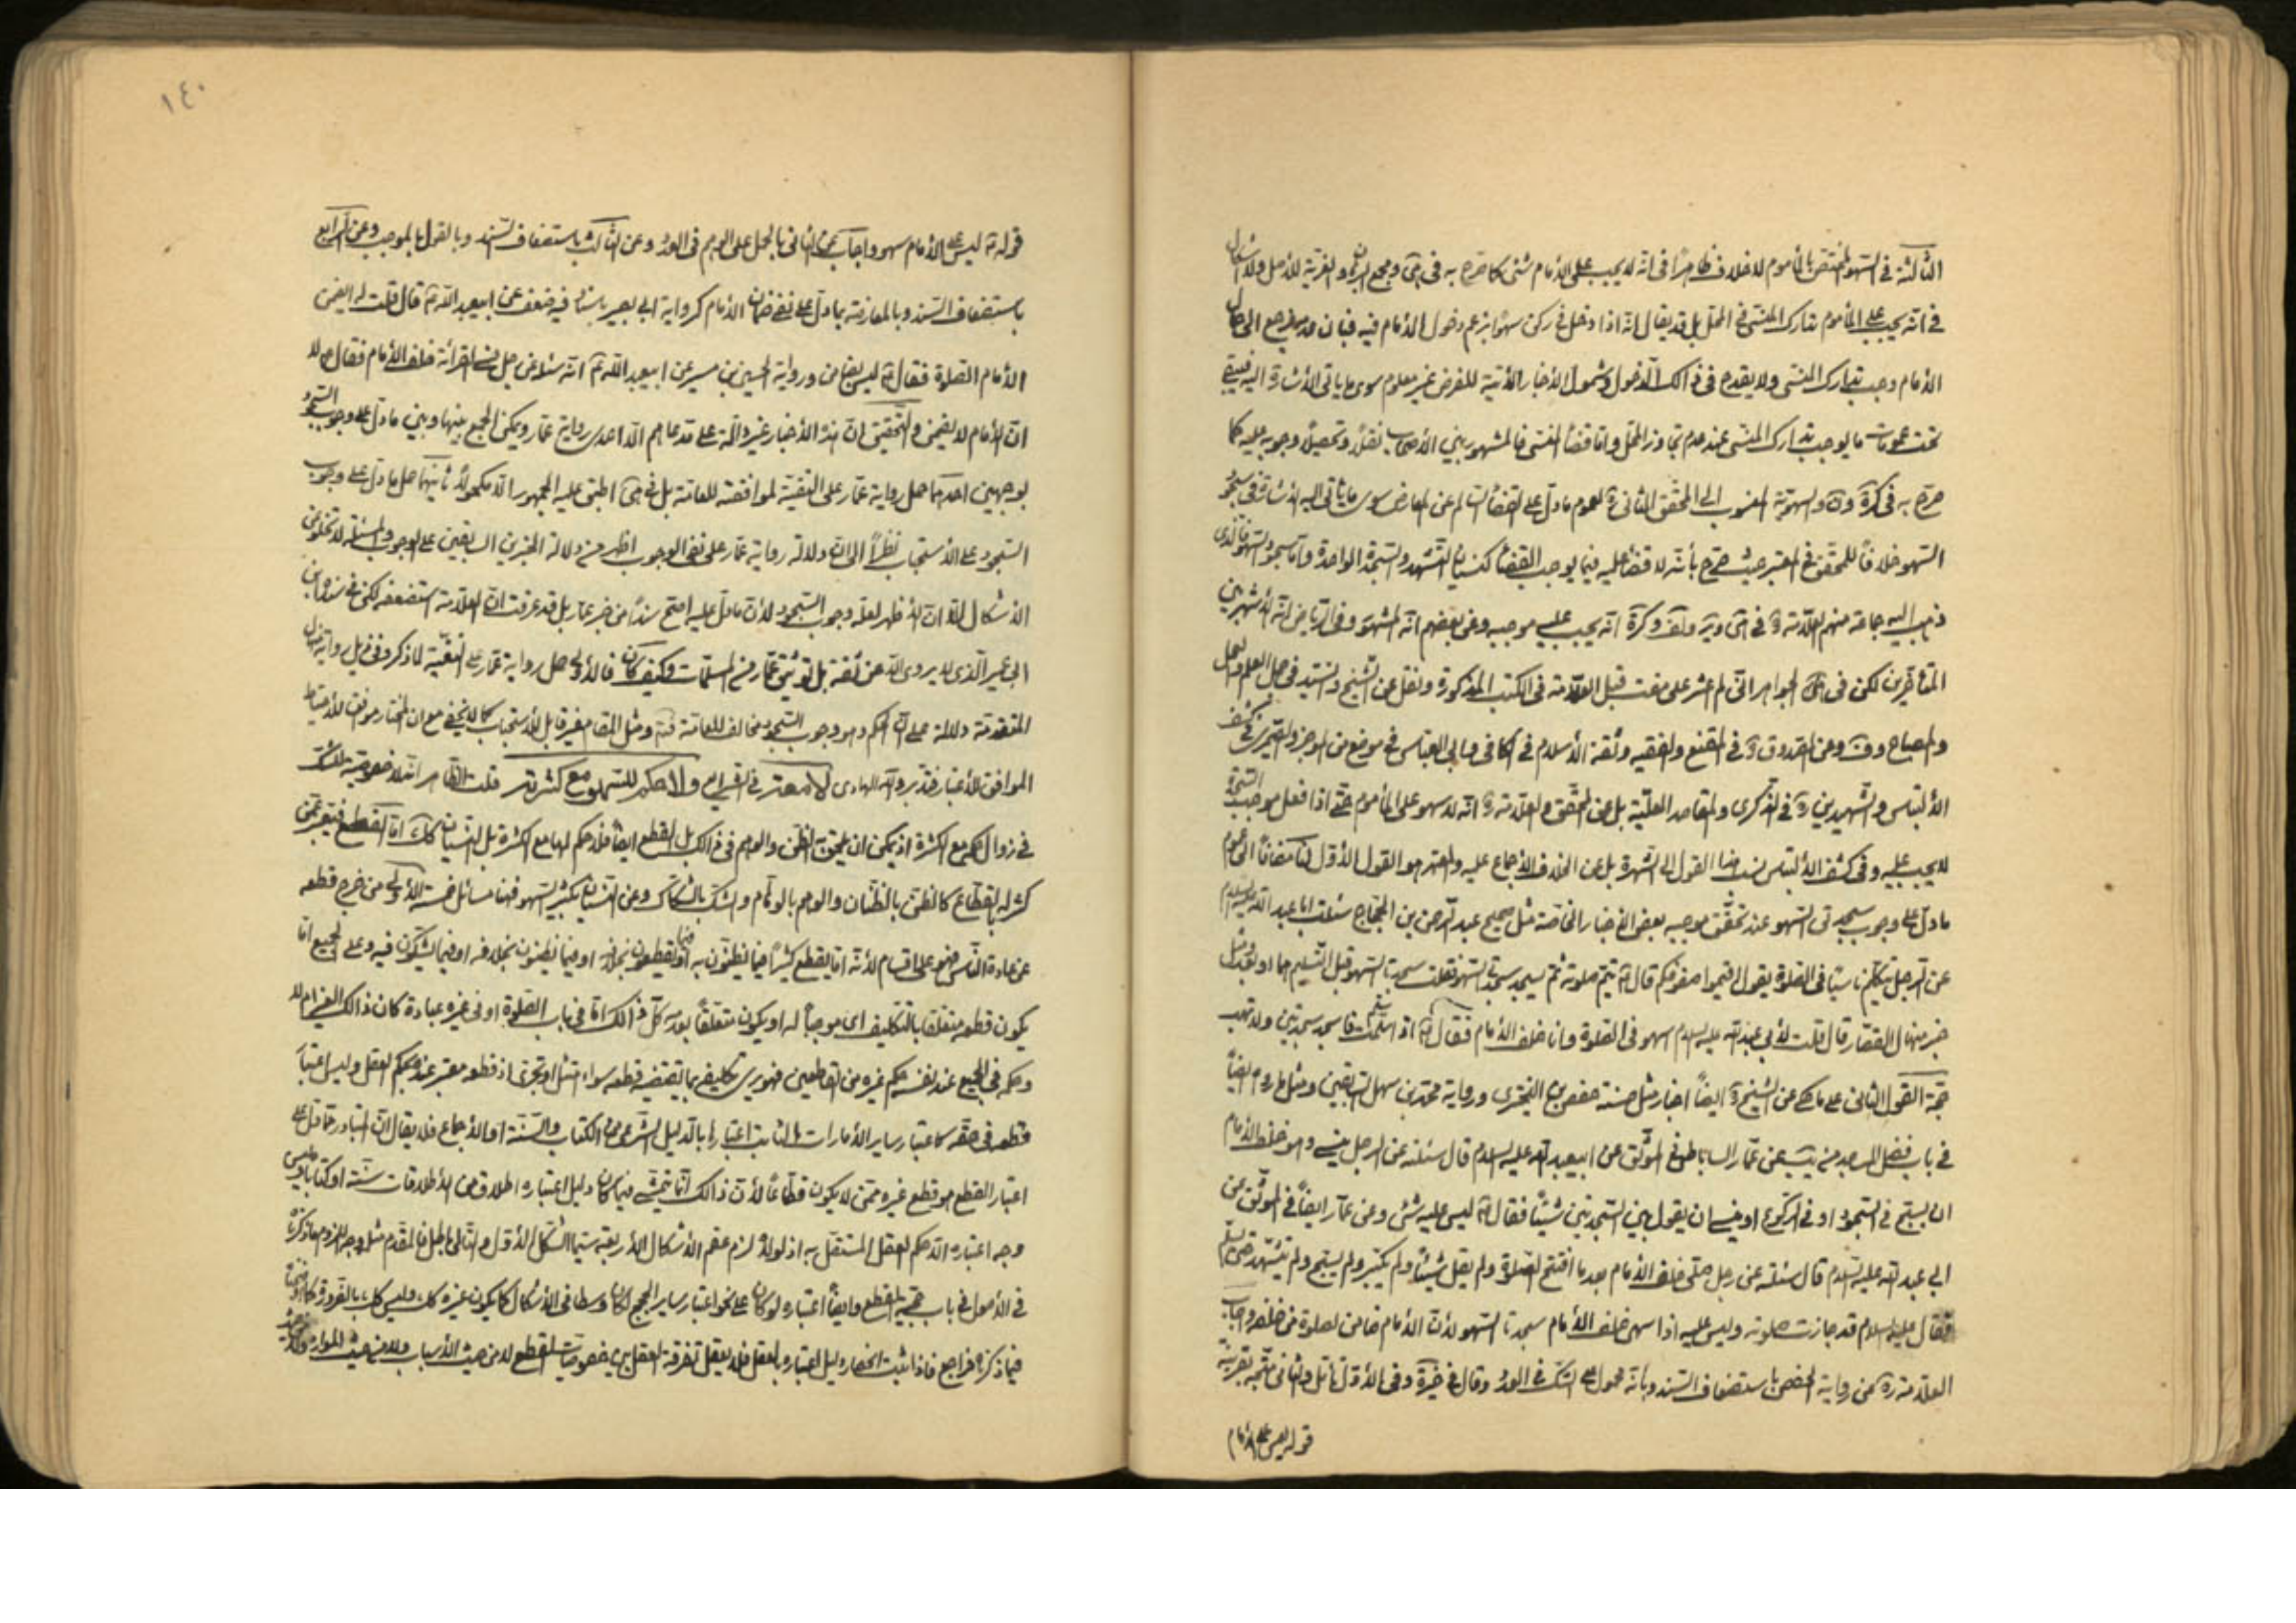 الثالثة في السهو المختص بالمأموم لا خلاف ظاهراً في انه لا يجب على الامام شئ كما صرح به في و مجمع و الغرية للأصل ولا اشكال
في انه يجب على المأموم تدارك المنسي في المحل بل قد يقال انه اذا دخل في ركن سهواً بزعم دخول الامام فيه فبان عدمه رجع الى حال
الامام وجب تدارك المنسي ولا يقدح في ذالك الدخول وشمول الاخبار الآتية للفرض غير معلوم سوى ما ياتي الاشارة اليه فيبقى
تحت عمومات ما يوجب تدارك المنسي عند عدم تجاوز المحل واما قضاء المنسي فالمشهور بين الأصحاب نقلاً وتحصيلاً وجوبه عليه كما
صرح به في كرة و المنسوب الى المحقق الثاني ره لعموم ما دل على القضاء السالم عن المعارض سوى ما ياتي اليه الاشارة في سجود
السهو خلافاً للمحقق في المعتبر حيث صرح بأنه لا قضاء عليه فيما يوجب القضاء كنسيان التشهد والسجدة الواحدة واما سجود السهو فالذي
ذهب اليه جماعة منهم العلامة ره في و كرة انه يجب عليه موجبه وعن بعضهم انه المشهور وفي الرياض انه الأشهر بين
المتأخرين لكن في الجواهر اني لم اعثر على مفت قبل العلامة في الكتب المذكورة ونقل عن الشيخ والسيد في جمل العلم والعمل
والمصباح وف وعن الصدوق ره في المقنع والفقيه وثقة الاسلام في الكافي وابي العباس في موضع من الموجز والصيمري في كشف
الالتباس والشهيدين ره في الذكرى والمقاصد العلية بل عن المحقق والعلامة ره انه لا سهو على المأموم حتى اذا فعل موجب السجدة
لا يجب عليه وفي كشف الالتباس نسبة هذا القول الى الشهرة بل عن الخلاف الاجماع عليه والمعتمد هو القول الأول لنا مضافاً الى عموم
ما دل على وجوب سجدتي السهو عند تحقق موجبه بعض الاخبار الخاصة مثل صحيح عبد الرحمن بن الحجاج سئلت ابا عبد الله عليه السلام
عن الرجل يتكلم ناسياً في الصلوة يقول اقيموا صفوفكم قال ع يتم صلوته ثم يسجد سجدتي السهو فقلت سجدتا السهو قبل التسليم هما او بعد ومثل
خبر منهال القصار قال قلت لأبي عبد الله عليه السلام اسهو في الصلوة وانا خلف الامام فقال ع اذا سلمت فاسجد سجدتين ولا تهب
حجة القول الثاني على ما حكى عن الشيخ ره ايضاً اخبار مثل حسنة حفص بن البختري ورواية محمد بن سهل السابقين ومثل ما رواه ايضاً
في باب فضل المساجد من يب عن عمار الساباطي في الموثق عن ابيعبد الله عليه السلام قال سئلته عن الرجل ينسى وهو خلف الامام
ان يسبح في السجود او في الركوع او ينسى ان يقول بين السجدتين شيئاً فقال ع ليس عليه شئ وعن عمار ايضاً في الموثق عن
ابي عبد الله عليه السلام قال سئلته عن رجل صلى خلف الامام بعد ما افتتح الصلوة ولم يقل شيئاً ولم يكبر ولم يسبح ولم يتشهد حتى يسلم
فقال عليه السلام قد جازت صلوته وليس عليه اذا سهى خلف الامام سجدتا السهو لأن الامام ضامن لصلوة من خلفه واجاب
العلامة ره عن رواية حفص باستضعاف السند وبأنه محمول على الشك في العدد وقال في خيرة وفي الأول تأمل والثاني متجه بقرينة
قوله ليس على الامام
١٤٠
قوله ع ليس على الامام سهو واجاب عن الثاني بالحمل على الوهم في العدد وعن الثالث باستضعاف السند وبالقول بالموجب وعن الرابع
باستضعاف السند وبالمعارضة بما دل على نفي ضمان الامام كرواية ابي بصير باسناد فيه ضعف عن ابيعبد الله ع قال قلت له ايضمن
الامام الصلوة فقال ع ليس بضامن ورواية الحسين بن بسير عن ابيعبد الله ع انه سئله عن رجل نسي القرائة خلف الامام فقال ع لا
ان الامام لا يضمن والتحقيق ان هذه الأخبار غير دالة على قدعاهم الا احدى رواية عمار ويمكن الجمع بينها وبين ما دل على وجوب السجود
بوجهين احدهما حمل رواية عمار على التقية لموافقته للعامة بل في اطبق عليه الجمهور الا مكحولاً ثانيهما حمل ما دل على وجوب
السجود على الاستحباب نظراً الى ان دلالة رواية عمار على نفي الوجوب اظهر من دلالة الخبرين السابقين على الوجوب والمسئلة لا تخلو عن
الاشكال الا ان الأظهر لعله وجوب السجود لأن ما دل عليه اصح سنداً من خبر عمار بل قد عرفت ان العلامة استضعفه لكن في سنده ابن
ابي عمير الذي لا يروى الا عن ثقة بل توثيق عمار من المسلمات وكيف كان فالأولى حمل رواية عمار على التقية لما ذكر وفي ذيل رواية منهال
المتقدمة دلالة على ان الحكم وهو وجوب السجود مخالف للعامة ومثل المقام غير قابل للاستحباب كما لا يخفى مع ان المختار موافق للأحتياط
الموافق للأعتبار فتدبر والله الهادي لا معتز في القرام ولا حكم للسهو مع كثرته قلت الظاهر انه لا خصوصية للشك
في زوال حكمه مع الكثرة اذ يمكن ان يلحق به الظن والوهم في ذالك بل القطع ايضاً فلا حكم لها مع الكثرة بل النسيان كك اما القطع فيعبر عمن
كثر له بالقطاع كالظن بالظنان والوهم بالوهام والشك بالشكاك وعن النسيان بكثير السهو فهنا مسائل خمسة الأولى من خرج قطعه
عن عادة الناس فهو على اقسام لأنه اما يقطع كثيراً فيما يظنون به او فيما يقطعون بخلافه او فيما يظنون بخلافه او فيما يشكون فيه وعلى الجميع اما
يكون قطعه متعلقاً بالتكليف اي موجباً له او يكون متعلقاً بعدمه كل ذالك اما في باب الصلوة او في غيره عبادة كان ذالك الغير ام لا
وحكمه في الجميع عند نفسه حكم غيره من القاطعين فهو يرى تكليفه بما يقتضيه قطعه سواء امتثل او تجرى اذ قطعه معتبر عنده بحكم العقل وليس اعتبار
قطعه في حقه كاعتبار ساير الأمارات الثابت اعتبارها بالدليل الشرعي من الكتاب والسنة او الاجماع فلا يقال ان المتبادر مما دل على
اعتبار القطع هو قطع غيره ممن لا يكون قطاعاً لأن ذالك انما يتمشى فيما كان دليل اعتباره اطلاق من الأطلاقات سنة او كتابا وليس
وجه اعتباره الا حكم العقل المستقل به اذ لولاه لزم عقم الأشكال الأربعة سيما الشكل الأول والتالي باطل فالمقدم مثله وجه اللزوم ما ذكرناه
في الأصول في باب حجية القطع وايضاً اعتباره لو كان على نحو اعتبار ساير الحجج لكان وسطا في الأشكال كما يكون غيره كك وليس كك بالضرورة كما
فيما ذكرناه فراجع فاذا ثبت انحصار دليل اعتباره بالعقل فلا يعقل تفرقة العقل بين خصوصيات القطع لا من حيث الأسباب ولا من حيث الموارد